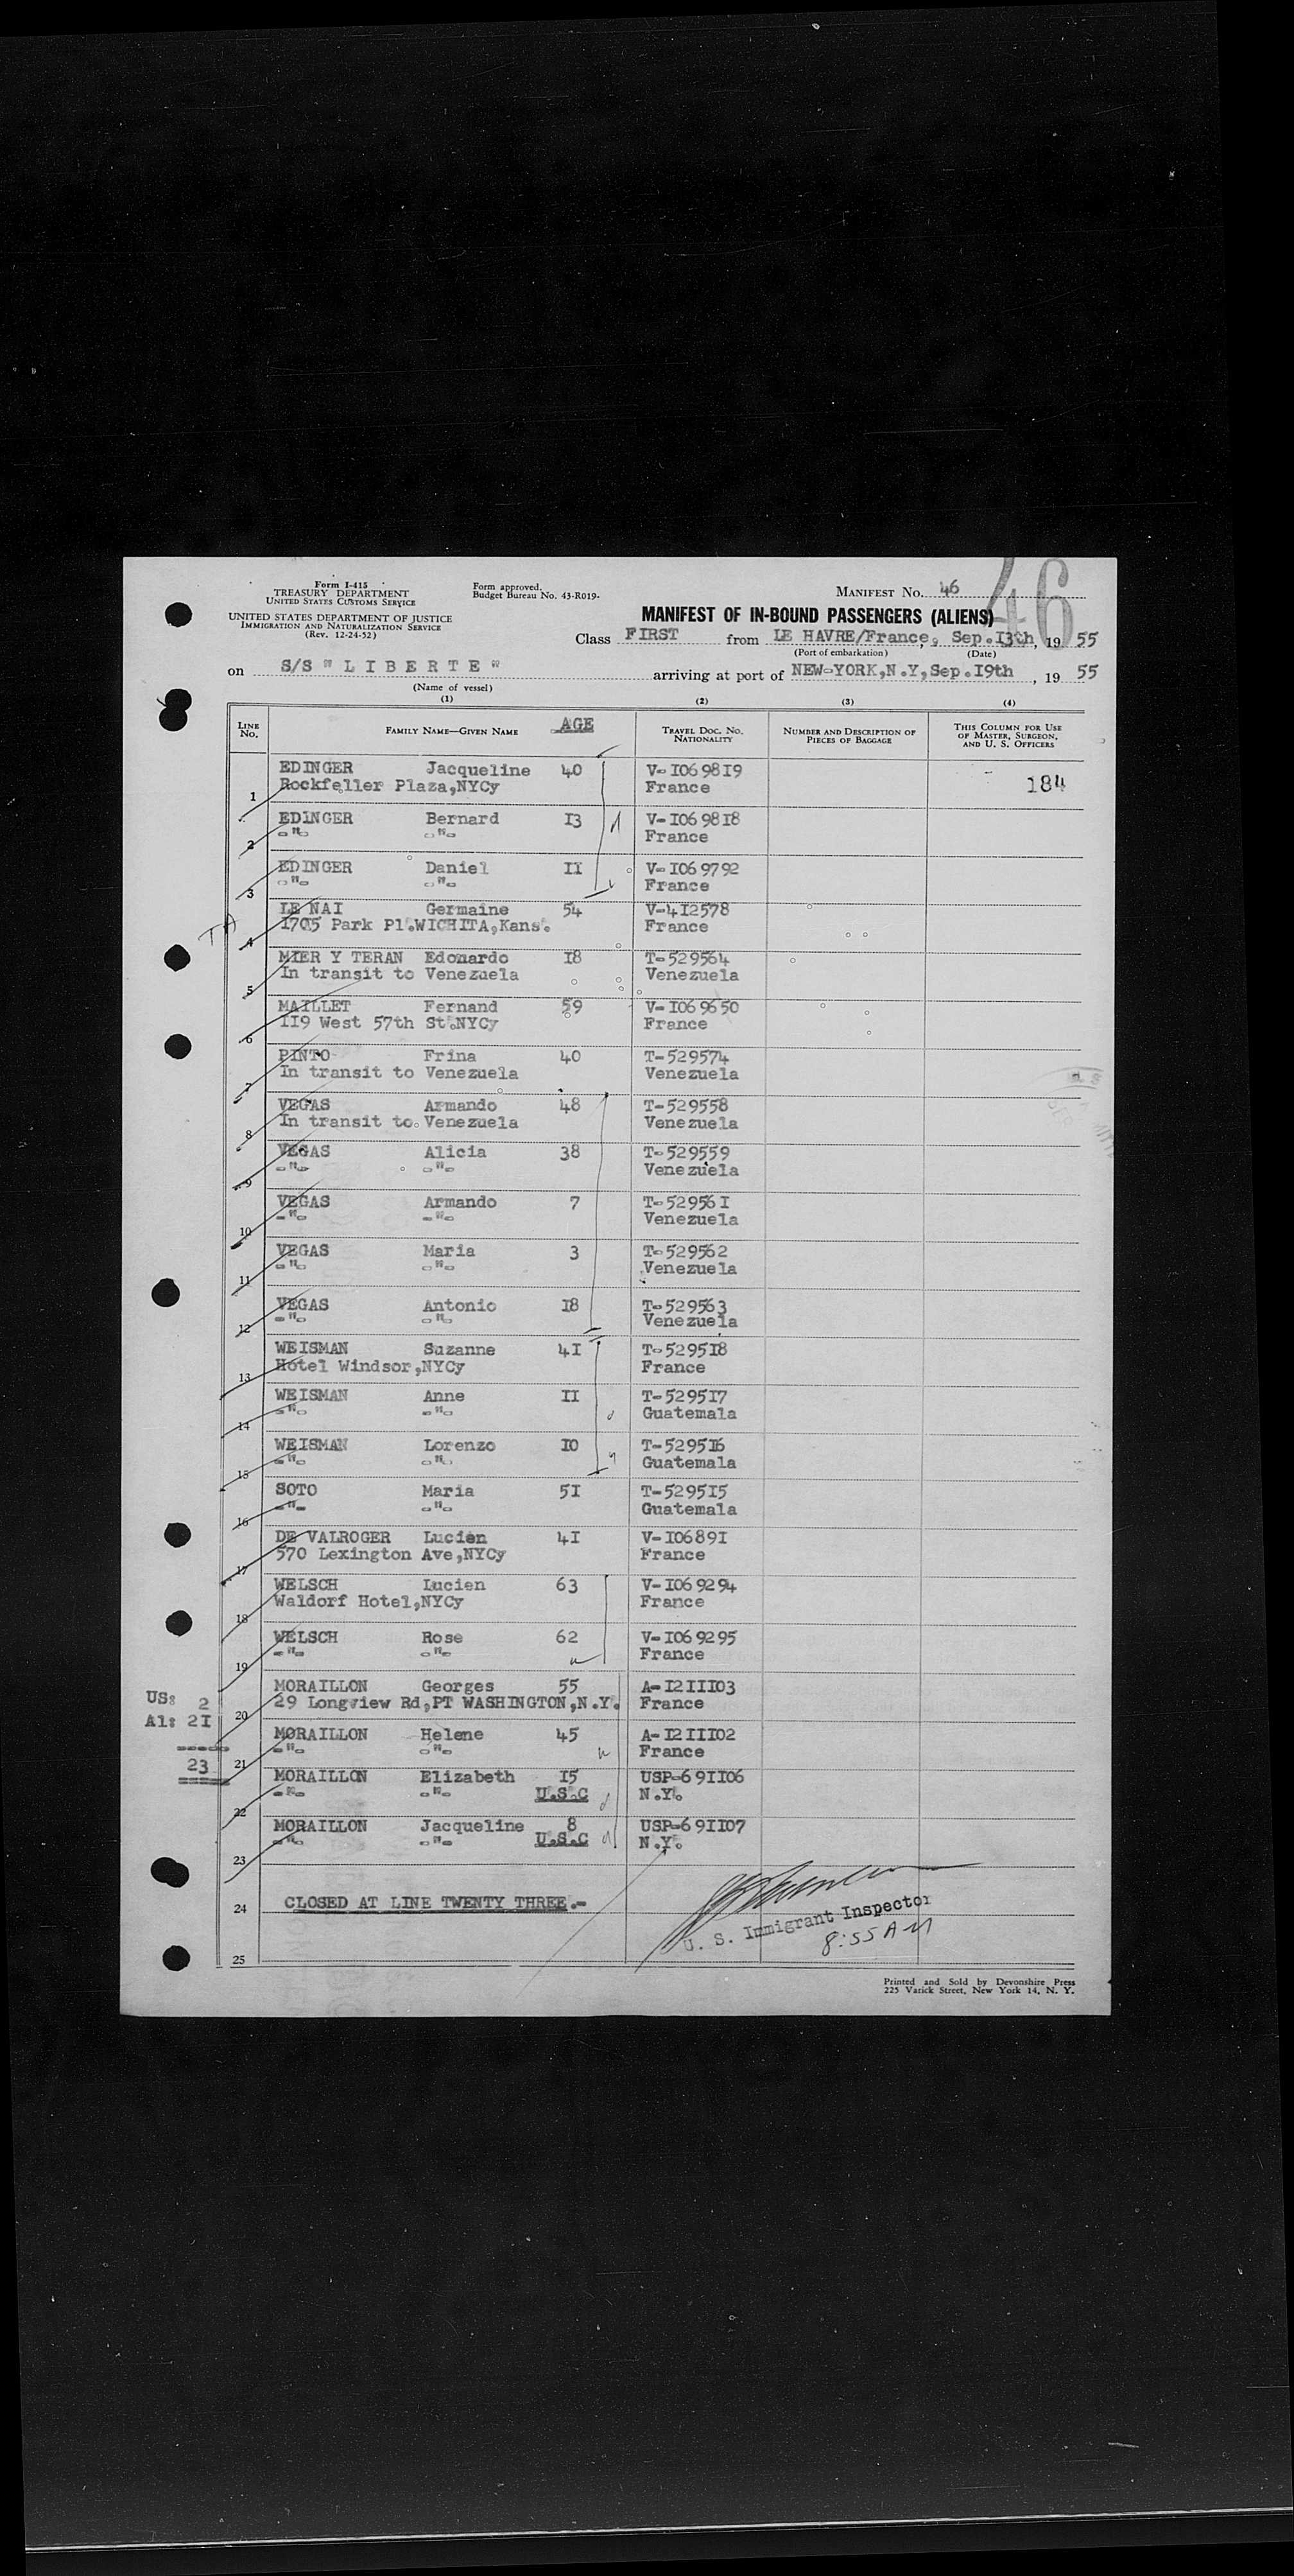 Form I-415
TREASURY DEPARTMENT
UNITED STATES CUSTOMS SERVICE
UNITED STATES DEPARTMENT OF JUSTICE
IMMIGRATION AND NATURALIZATION SERVICE
(Rev. 12-24-52)
Form approved.
Budget Bureau No. 43-R019-
MANIFEST No. 46
46
MANIFEST OF IN-BOUND PASSENGERS (ALIENS)
Class FIRST from LE HAVRE/France, Sep.I3th, 19 55
(Port of embarkation) (Date)
on S/S "L I B E R T E" arriving at port of NEW-YORK,N.Y,Sep.I9th, 19 55
(Name of vessel)
(1) (2) (3) (4)
LINE No. FAMILY NAME—GIVEN NAME AGE TRAVEL DOC. NO. NATIONALITY NUMBER AND DESCRIPTION OF PIECES OF BAGGAGE THIS COLUMN FOR USE OF MASTER, SURGEON, AND U. S. OFFICERS
EDINGER Jacqueline 40 V-I0698I9 184
1 Rockfeller Plaza,NYCy France
EDINGER Bernard I3 V-I0698I8
2 -"- -"- France
EDINGER Daniel II V-I069792
3 -"- -"- France
LE NAI Germaine 54 V-4I2578
4 I705 Park Pl.WICHITA,Kans. France
MIER Y TERAN Edouardo I8 T-529564
5 In transit to Venezuela Venezuela
MAILLET Fernand 59 V-I069650
6 II9 West 57th St.NYCy France
PINTO Frina 40 T-529574
7 In transit to Venezuela Venezuela
VEGAS Armando 48 T-529558
8 In transit to Venezuela Venezuela
VEGAS Alicia 38 T-529559
9 -"- -"- Venezuela
VEGAS Armando 7 T-52956I
10 -"- -"- Venezuela
VEGAS Maria 3 T-529562
11 -"- -"- Venezuela
VEGAS Antonio I8 T-529563
12 -"- -"- Venezuela
WEISMAN Suzanne 4I T-5295I8
13 Hotel Windsor,NYCy France
WEISMAN Anne II T-5295I7
14 -"- -"- Guatemala
WEISMAN Lorenzo I0 T-5295I6
15 -"- -"- Guatemala
SOTO Maria 5I T-5295I5
16 -"- -"- Guatemala
DE VALROGER Lucien 4I V-I0689I
17 570 Lexington Ave,NYCy France
WELSCH Lucien 63 V-I069294
18 Waldorf Hotel,NYCy France
WELSCH Rose 62 V-I069295
19 -"- -"- France
MORAILLON Georges 55 A-I2III03
20 29 Longview Rd,PT WASHINGTON,N.Y. France
MORAILLON Helene 45 A-I2III02
21 -"- -"- France
MORAILLON Elizabeth I5 USP-69II06
22 -"- -"- U.S.C N.Y.
MORAILLON Jacqueline 8 USP-69II07
23 -"- -"- U.S.C N.Y.
US: 2
Al: 2I
23
24 CLOSED AT LINE TWENTY THREE.-
U. S. Immigrant Inspector
8:55 AM
25
Printed and Sold by Devonshire Press
225 Varick Street, New York 14, N. Y.